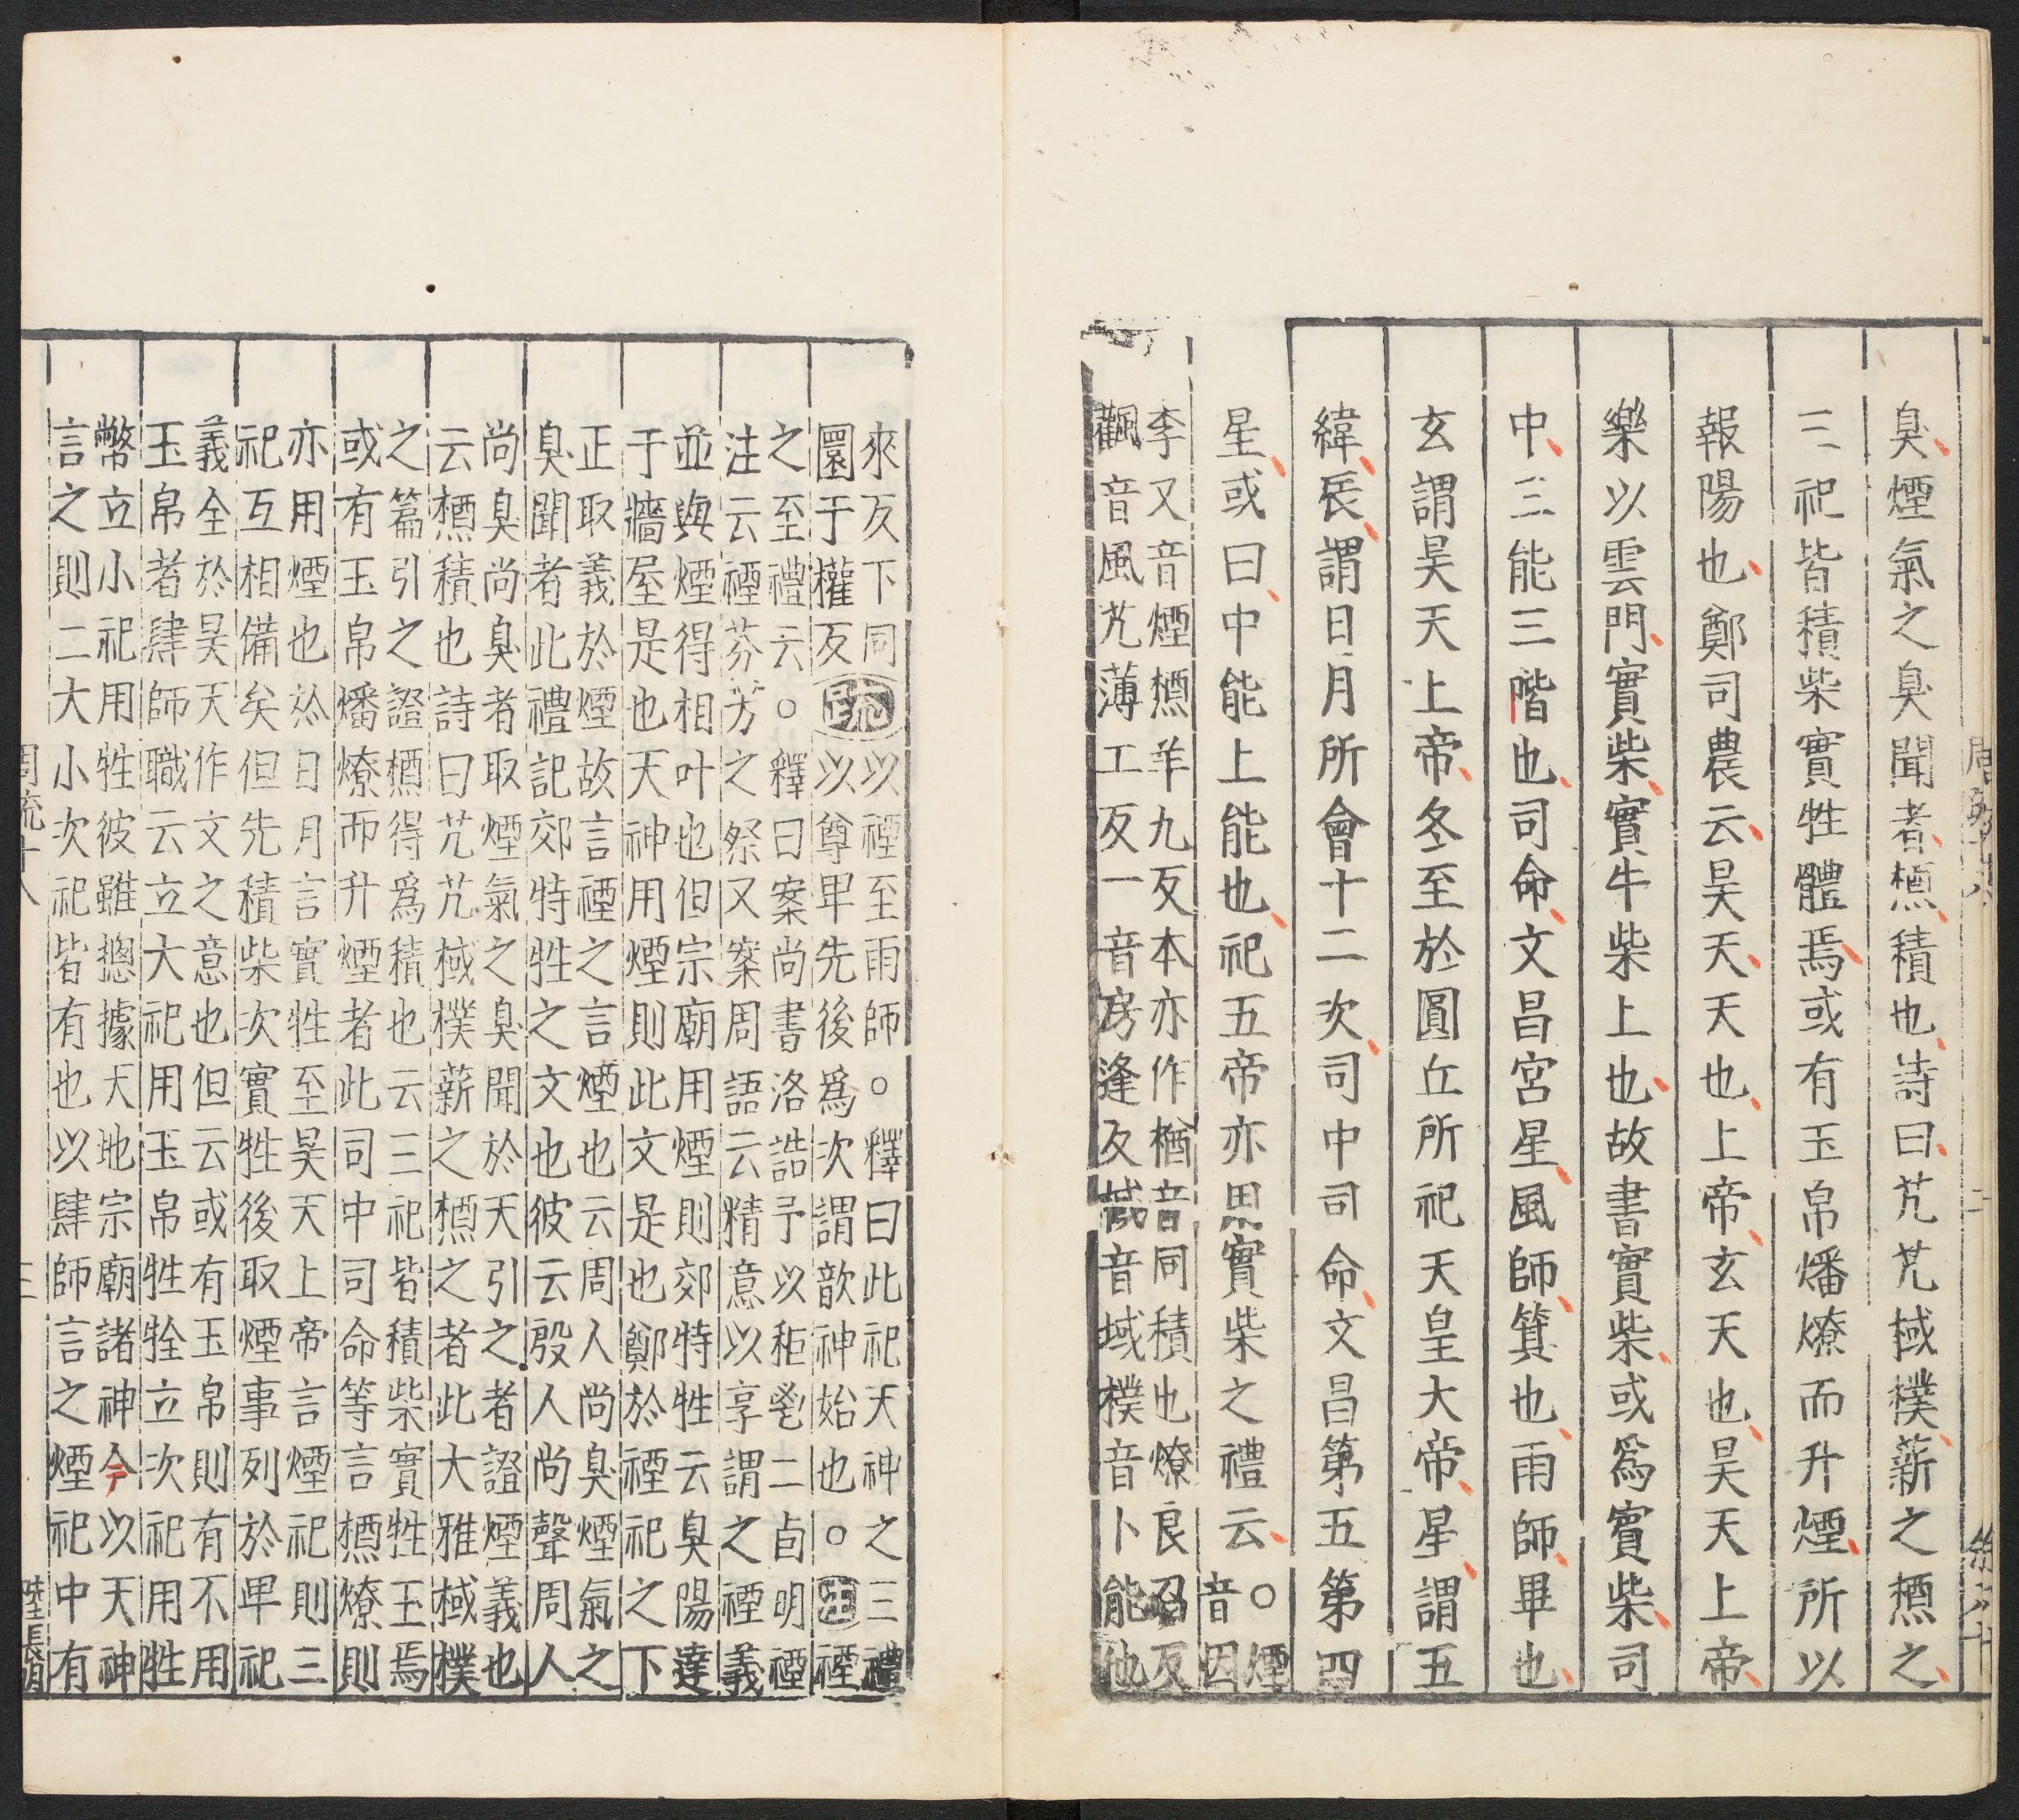 臭煙氣之臭聞者槱積也詩曰芃芃棫樸薪之槱之
三祀皆積柴實牲體焉或有玉帛燔燎而升煙所以
報陽也鄭司農云昊天天也上帝玄天也昊天上帝
樂以雲門實柴實牛柴上也故書實柴或爲賓柴司
中三能三階也司命文昌宮星風師箕也雨師畢也
玄謂昊天上帝冬至於圓丘所祀天皇大帝星謂五
緯辰謂日月所會十二次司中司命文昌第五第四
星或曰中能上能也祀五帝亦用實柴之禮云○煙
音因
李又音煙槱羊九反本亦作楢音同積也燎良召反
飌音風芃薄工反一音房逢反棫音域樸音卜能他
來反下同以禋至雨師○釋曰此祀天神之三禮
圜于權反疏以尊卑先後爲次謂歆神始也○注禋
之至禮云○釋曰案尚書洛誥予以秬鬯二卣明禋
注云禋芬芳之祭又案周語云精意以享謂之禋義
並與煙得相叶也但宗廟用煙則郊特牲云臭陽達
于牆屋是也天神用煙則此文是也鄭於禋祀之下
正取義於煙故言禋之言煙也云周人尚臭煙氣之
臭聞者此禮記郊特牲之文也彼云殷人尚聲周人
尚臭尚臭者取煙氣之臭聞於天引之者證煙義也
云槱積也詩曰芃芃棫樸薪之槱之者此大雅棫樸
之篇引之證槱得爲積也云三祀皆積柴實牲玉焉
或有玉帛燔燎而升煙者此司中司命等言槱燎則
亦用煙也於日月言實牲至昊天上帝言煙祀則三
祀互相備矣但先積柴次實牲後取煙事列於卑祀
義全於昊天作文之意也但云或有玉帛則有不用
玉帛者肆師職云立大祀用玉帛牲牷立次祀用牲
幣立小祀用牲彼雖摠據天地宗廟諸神今以天神
言之則二大小次祀皆有也以肆師言之煙祀中有
周疏十八
三